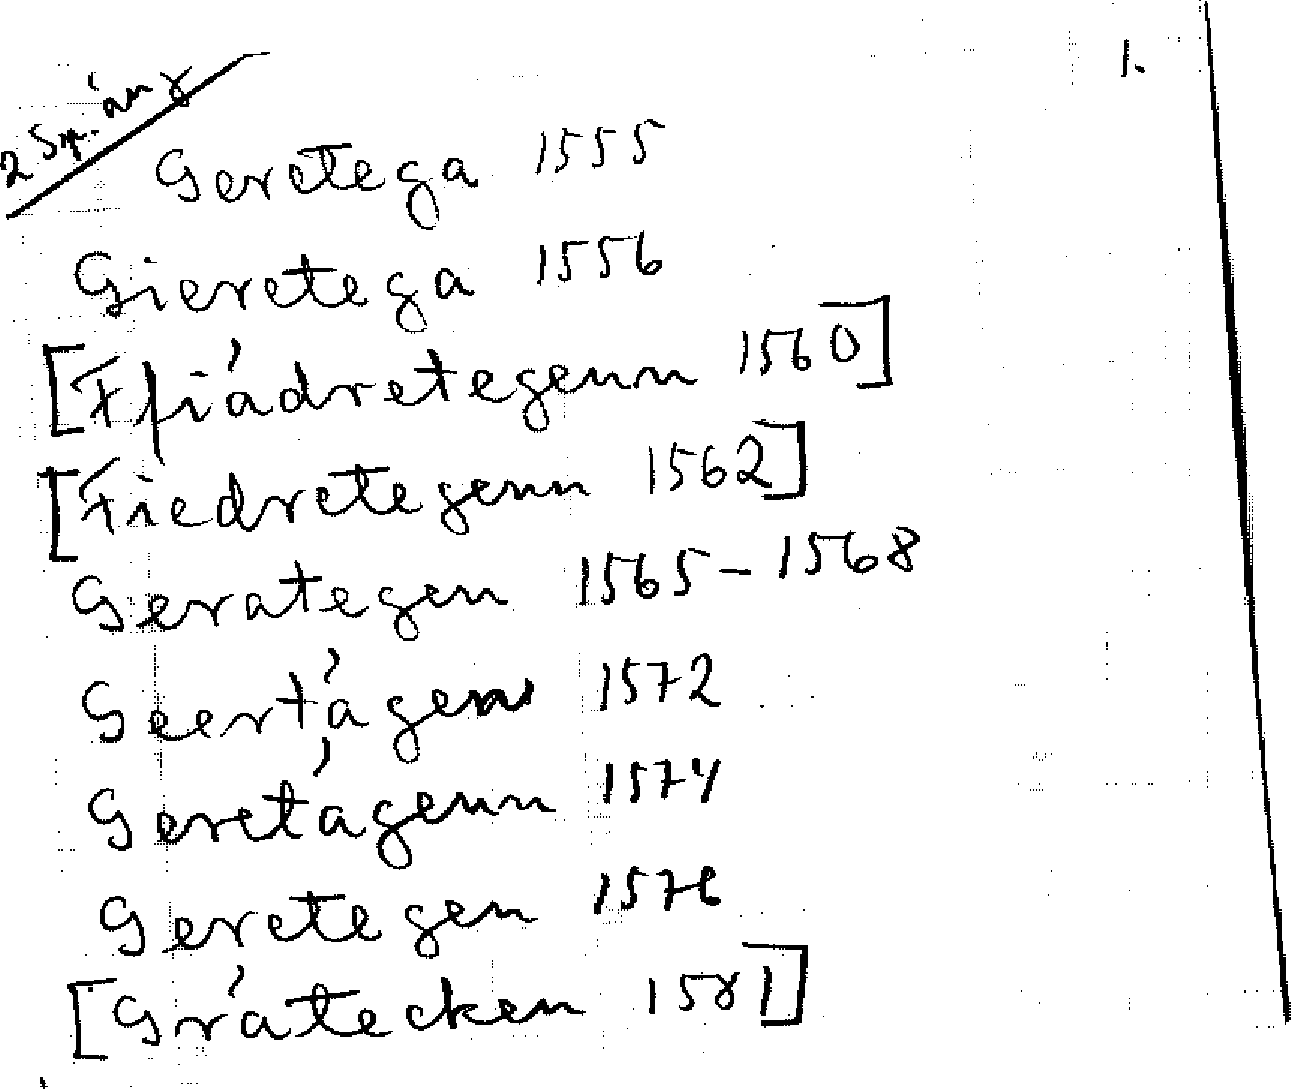 1.
2 Sp. áng
Geretega 1555
Gieretega 1556
[Ffiádretegenn 1560]
[Fiedretegenn 1562]
Gerategen 1565-1568
Geertágen 1572
Geretágenn 1574
Geretegen 1576
[Grátecken 1581]